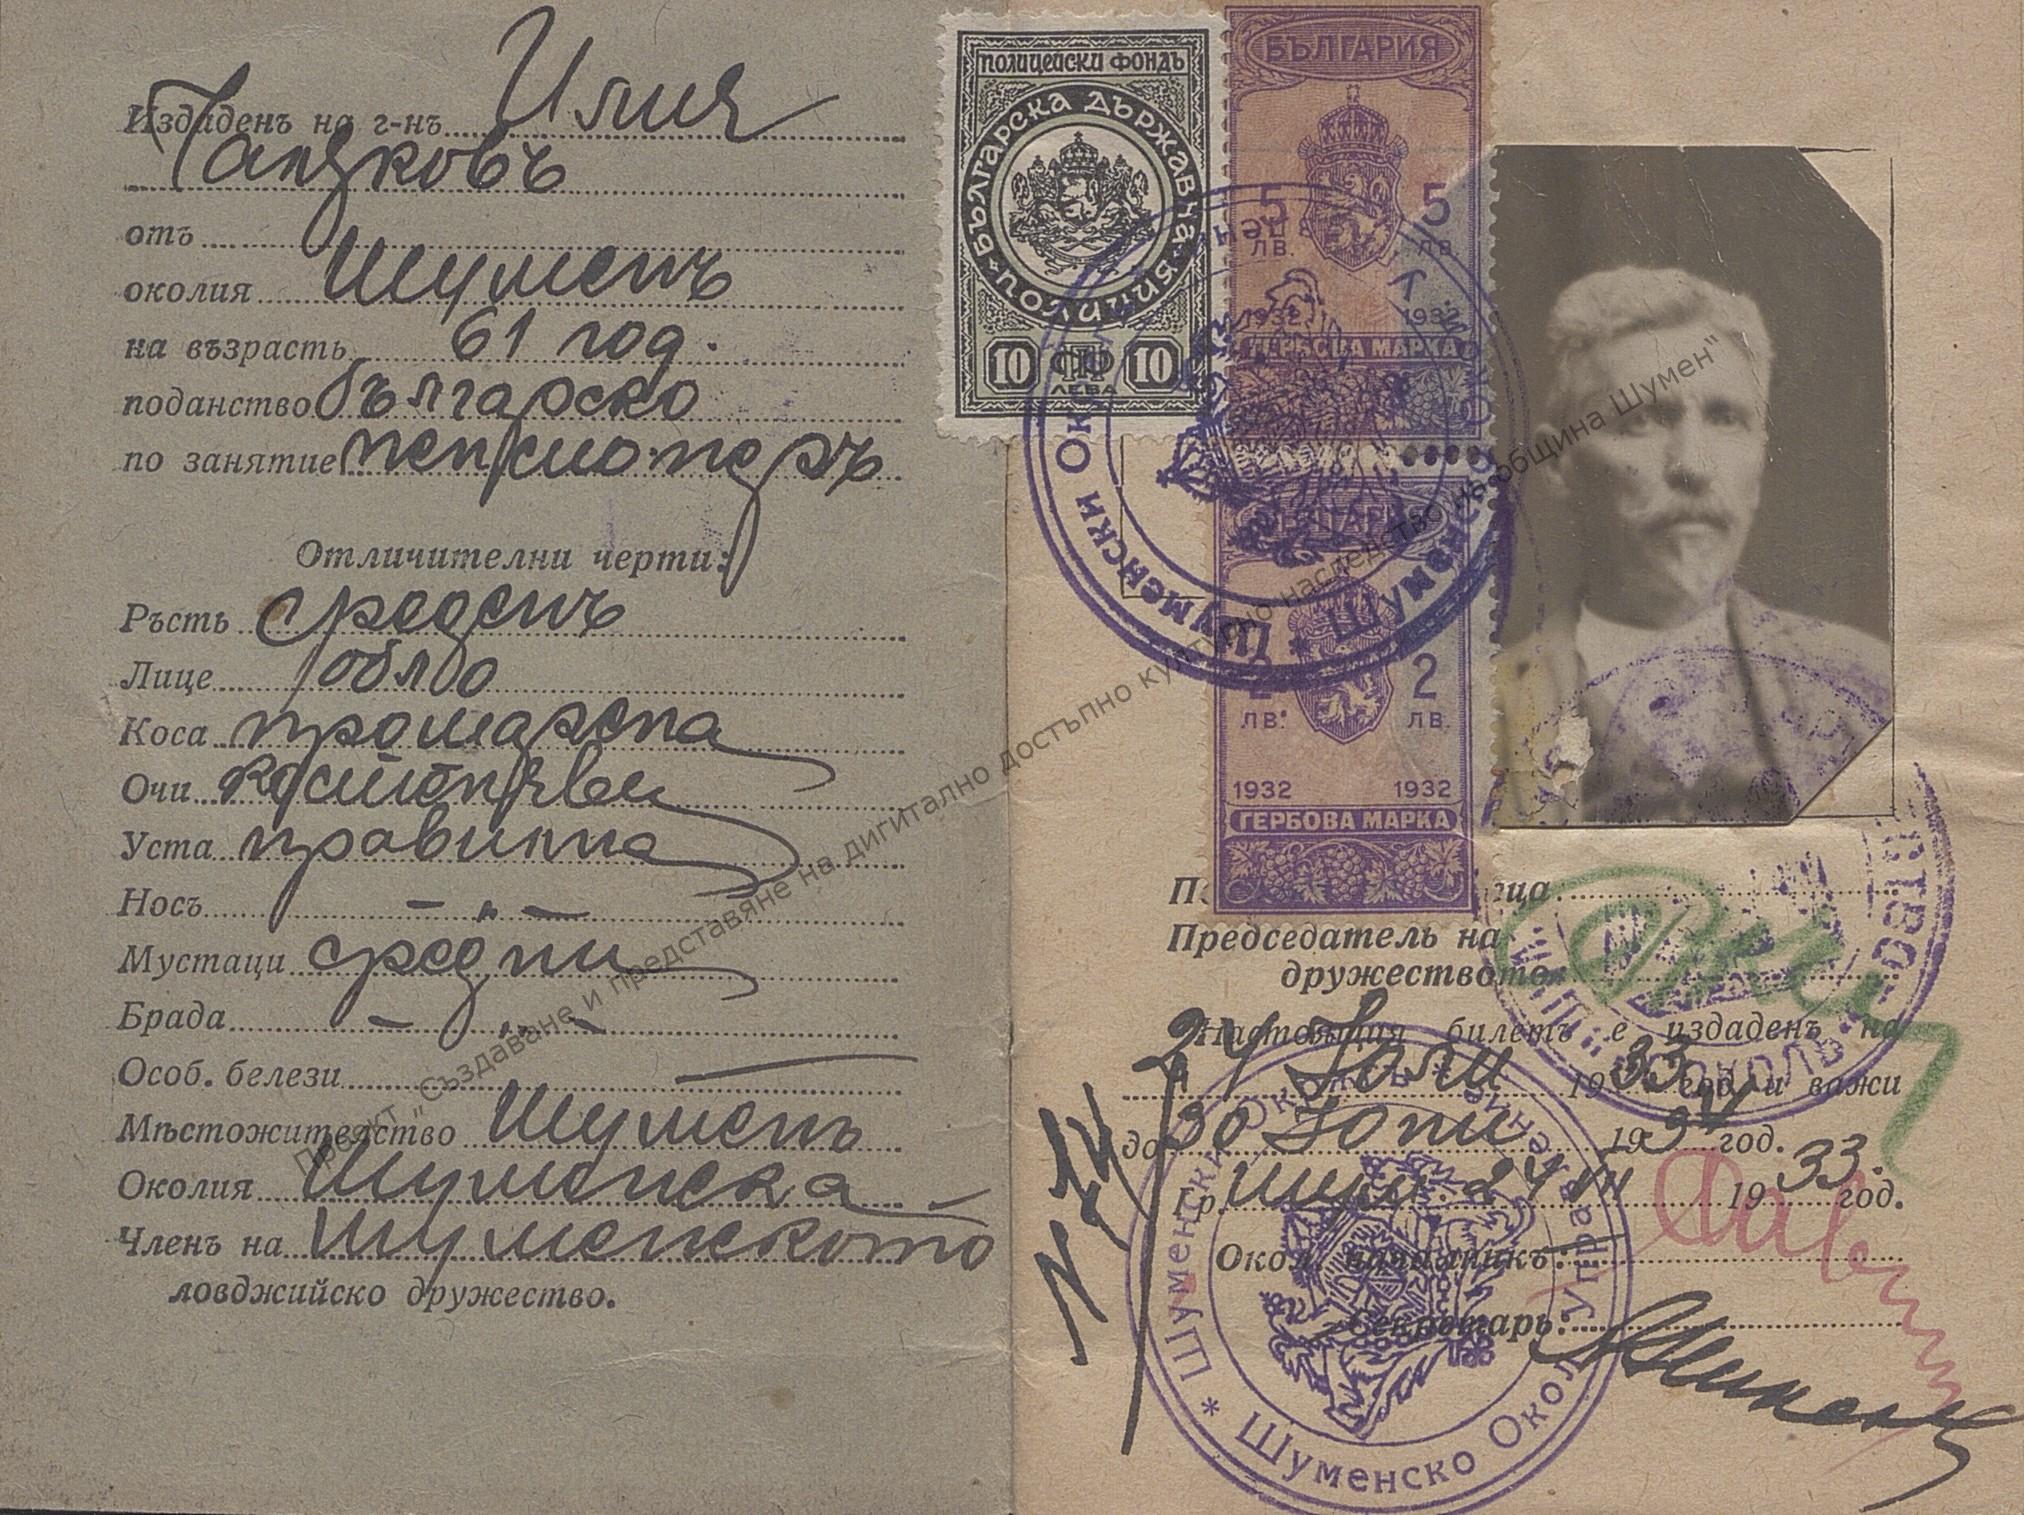 Издаденъ на г-нъ Илия
Танковъ
отъ
околия Шуменъ
на възрасть 61 год.
поданство българско
по занятие пенсионеръ
Отличителни черти:
Ръсть среденъ
Лице обло
Коса прошарена
Очи кестеняви
Уста правилна
Носъ — „ —
Мустаци средни
Брада — „ —
Особ. белези —
Мѣстожителство Шуменъ
Околия Шуменска
Членъ на Шуменското
ловджийско дружество.
ПОЛИЦЕЙСКИ ФОНДЪ
БЪЛГАРСКА ДЪРЖАВНА ПОЛИЦИЯ
10 ПФ 10
ЛЕВА
БЪЛГАРИЯ
5 5
ЛВ. ЛВ.
1932 1932
ГЕРБОВА МАРКА
2 2
ЛВ. ЛВ.
1932 1932
ГЕРБОВА МАРКА
Председатель на
дружеството:
Настоящия билетъ е издаденъ на
24 Юли 1933 год. и важи
до 30 Юни 1934 год.
Гр. Шумен 24 1933 год.
Окол. началникъ:
Секретарь:
Шуменско Окол. Управление * Шуменски Окръжъ *
Проект „Създаване и представяне на дигитално достъпно културно наследство на община Шумен“